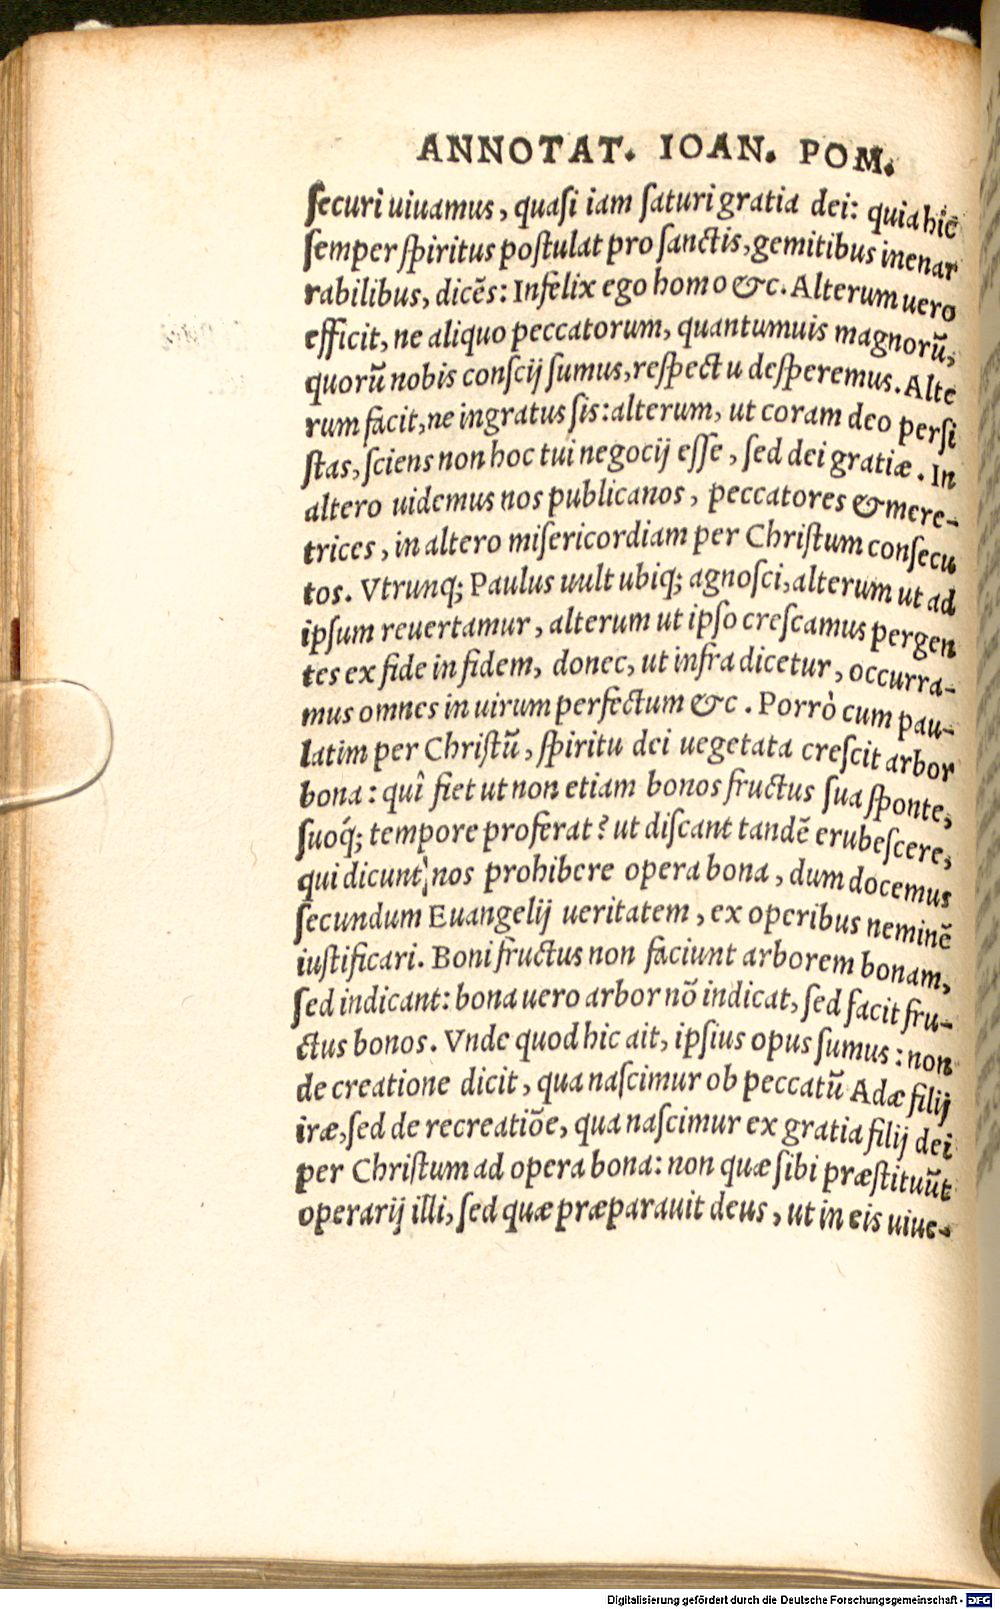 ANNOTAT. IOAN. POM.
ſecuri uiuamus, quaſi iam ſaturi gratia dei: quia hic
ſemper ſpiritus poſtulat pro ſanctis, gemitibus inenar
rabilibus, dicẽs: Infelix ego homo &c. Alterum uero
efficit, ne aliquo peccatorum, quantumuis magnorũ,
quorũ nobis conſcij ſumus, reſpectu deſperemus. Alte
rum facit, ne ingratus ſis: alterum, ut coram deo perſi
ſtas, ſciens non hoc tui negocij eſſe, ſed dei gratiæ. In
altero uidemus nos publicanos, peccatores & mere-
trices, in altero miſericordiam per Chriſtum conſecu
tos. Vtrunq; Paulus uult ubiq; agnoſci, alterum ut ad
ipſum reuertamur, alterum ut ipſo creſcamus pergen
tes ex fide in fidem, donec, ut infra dicetur, occurra-
mus omnes in uirum perfectum &c. Porrò cum pau-
latim per Chriſtũ, ſpiritu dei uegetata creſcit arbor
bona: quî fiet ut non etiam bonos fructus ſua ſponte,
ſuoq́; tempore proferat? ut diſcant tandẽ erubeſcere,
qui dicunt nos prohibere opera bona, dum docemus
ſecundum Euangelij ueritatem, ex operibus neminẽ
iuſtificari. Boni fructus non faciunt arborem bonam,
ſed indicant: bona uero arbor nõ indicat, ſed facit fru-
ctus bonos. Vnde quod hic ait, ipſius opus ſumus: non
de creatione dicit, qua naſcimur ob peccatũ Adæ filij
iræ, ſed de recreatiõe, qua naſcimur ex gratia filij dei
per Chriſtum ad opera bona: non quæ ſibi præſtituũt
operarij illi, ſed quæ præparauit deus, ut in eis uiue-
Digitalisierung gefördert durch die Deutsche Forschungsgemeinschaft - DFG